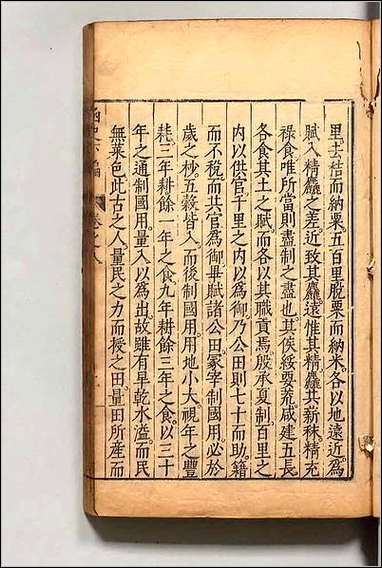 里去秸而納粟。五百里脫粟而納米。各以地遠近。為
賦入精麤之差。近致其麤。遠惟其精。麤共薪秣。精充
祿食。唯所當則盡制之盡也。其侯綏要荒。咸建五長
各食其土之賦。而各以其職貢焉。殷承夏制。百里之
內以供官。千里之內以為御。乃公田則七十而助。籍
而不稅。而共官為御。毋賦諸公田。冢宰制國用。必於
歲之杪。五穀皆入。而後制國用。用地小大。視年之豐
耗。三年耕餘一年之食。九年耕餘三年之食。以三十
年之通制國用。量入以為出。故雖有旱乾水溢。而民
無菜色。此古之人量民之力而授之田。量田所產而
卷之八